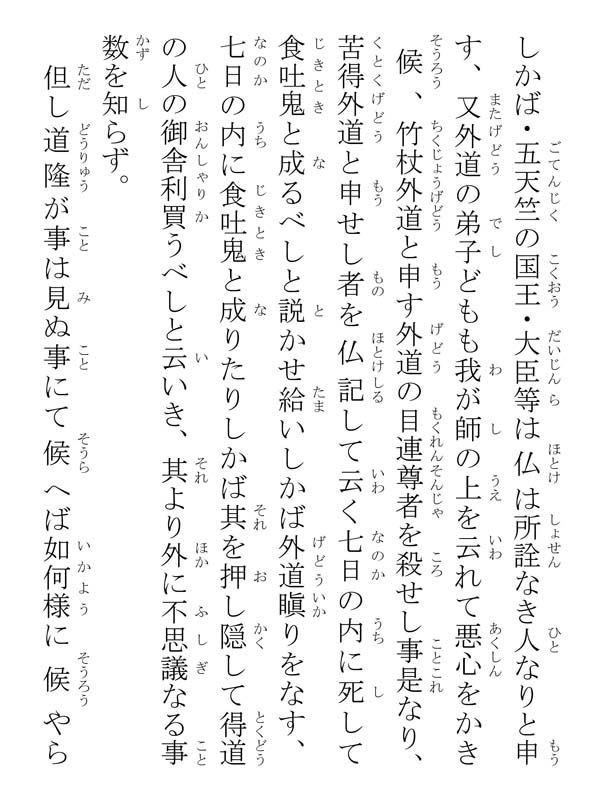 しかば・五天竺の国王・大臣等は仏は所詮なき人なりと申
す、又外道の弟子どもも我が師の上を云れて悪心をかき
候、竹杖外道と申す外道の目連尊者を殺せし事是なり、
苦得外道と申せし者を仏記して云く七日の内に死して
食吐鬼と成るべしと説かせ給いしかば外道瞋りをなす、
七日の内に食吐鬼と成りたりしかば其を押し隠して得道
の人の御舎利買うべしと云いき、其より外に不思議なる事
数を知らず。
但し道隆が事は見ぬ事にて候へば如何様に候やら